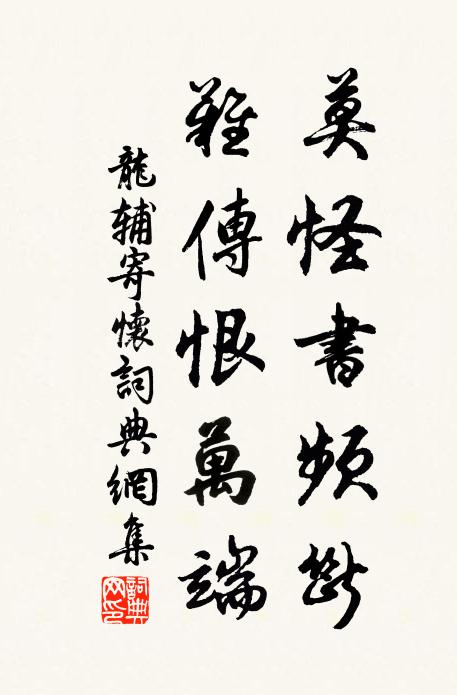 莫怪書頻斷
難傳恨萬端
龍輔寄懷詞典網集
詞典網印